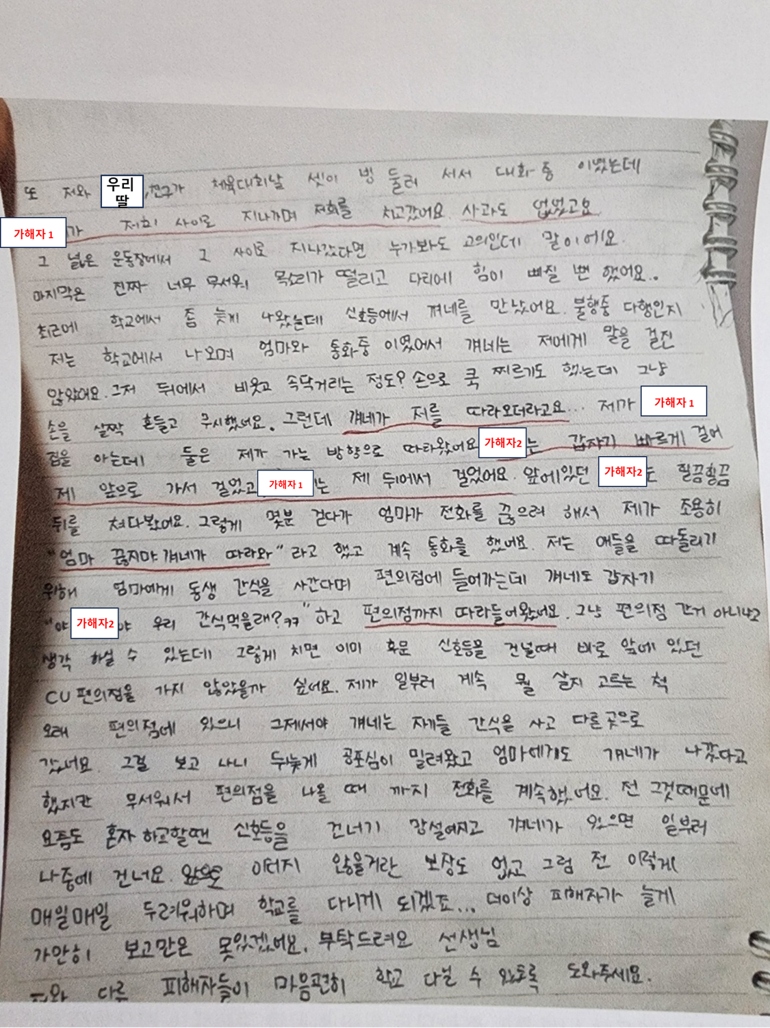 또 저와 우리 딸, 친구가 체육대회날 셋이 빙 둘러 서서 대화 중 이였는데
가해자 1 가 저희 사이로 지나가며 저희를 치고갔어요. 사과도 없었고요
그 넓은 운동장에서 그 사이로 지나갔다면 누가봐도 고의인데 말이에요.
마지막은 진짜 너무 무서워 목소리가 떨리고 다리에 힘이 빠질 뻔 했어요.
최근에 학교에서 좀 늦게 나왔는데 신호등에서 걔네를 만났어요. 불행중 다행인지
저는 학교에서 나오며 엄마와 통화중 이였어서 걔네는 저에게 말을 걸진
않았어요. 그저 뒤에서 비웃고 속닥거리는 정도? 손으로 쿡 찌르기도 했는데 그냥
손을 살짝 흔들고 무시했어요. 그런데 걔네가 저를 따라오더라고요... 제가 가해자 1
집을 아는데 둘은 제가 가는 방향으로 따라왔어요 가해자2 는 갑자기 빠르게 걸어
제 앞으로 가서 걸었고 가해자 1 는 제 뒤에서 걸었어요. 앞에있던 가해자2 도 힐끔힐끔
뒤를 쳐다봤어요. 그렇게 몇분 걷다가 엄마가 전화를 끊으려 해서 제가 조용히
"엄마 끊지마 걔네가 따라와" 라고 했고 계속 통화를 했어요. 저는 얘들을 따돌리기
위해 엄마에게 동생 간식을 사간다며 편의점에 들어가는데 걔네도 갑자기
"야 가해자2 야 우리 간식먹을래? ㅋㅋ" 하고 편의점까지 따라들어왔어요. 그냥 편의점 간거 아니냐고
생각 하실 수 있는데 그렇게 치면 이미 후문 신호등을 건널때 바로 앞에 있던
CU 편의점을 가지 않았을까 싶어요. 제가 일부러 계속 뭘 살지 고르는 척
오래 편의점에 있으니 그제서야 걔네는 쟤네들 간식을 사고 다른 곳으로
갔어요. 그걸 보고 나니 뒤늦게 공포심이 밀려왔고 엄마에게도 걔네가 나갔다고
했지만 무서워서 편의점을 나올 때 까지 전화를 계속했어요. 전 그것때문에
요즘도 혼자 하교할땐 신호등을 건너기 망설여지고 걔네가 있으면 일부러
나중에 건너요. 앞으로 이러지 않을거란 보장도 없고 그럼 전 이렇게
매일매일 두려워하며 학교를 다니게 되겠죠... 더이상 피해자가 늘게
가만히 보고만은 못있겠어요. 부탁드려요 선생님
다른 피해자들이 마음편히 학교 다닐 수 있도록 도와주세요.